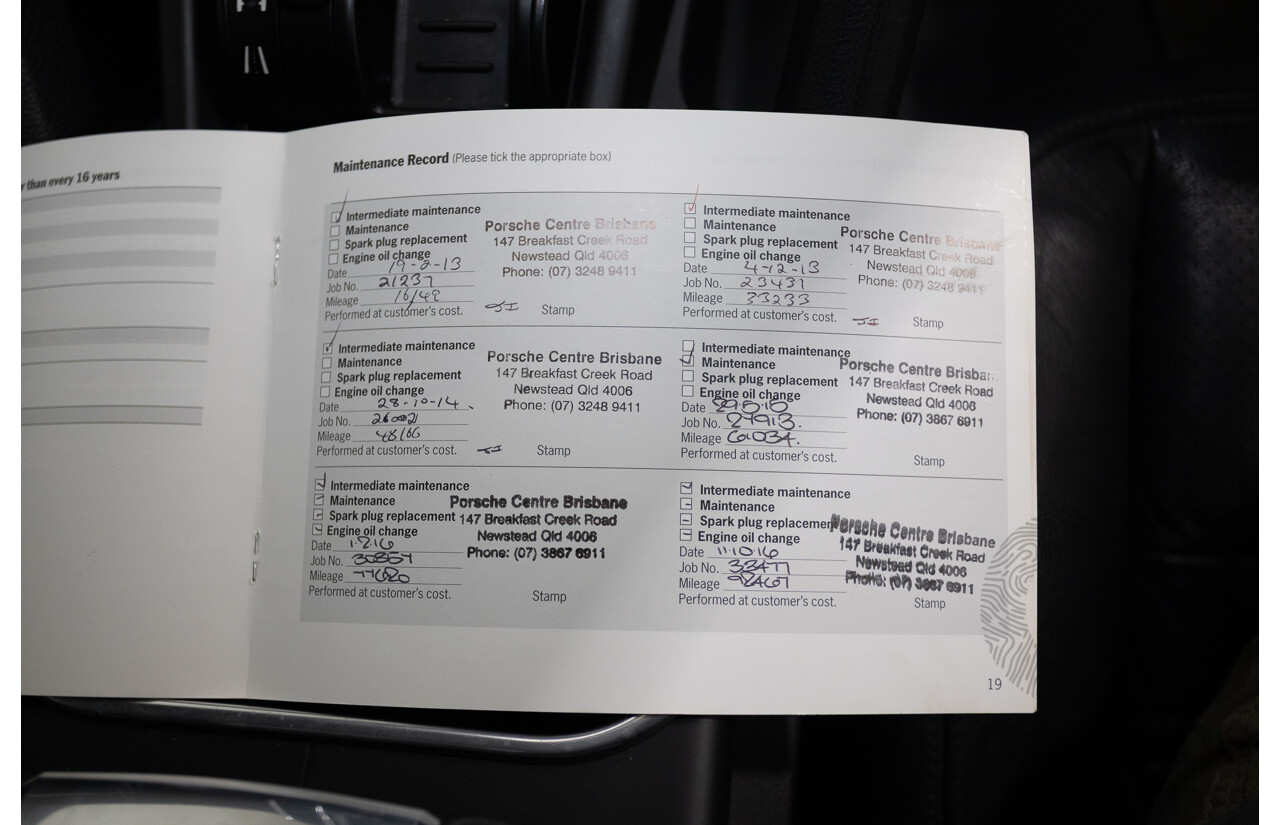 r than every 16 years
Maintenance Record (Please tick the appropriate box)
Intermediate maintenance
Maintenance
Spark plug replacement
Engine oil change
Date 19-2-13
Job No. 21237
Mileage
Performed at customer's cost.
Porsche Centre Brisbane
147 Breakfast Creek Road
Newstead Qld 4006
Phone: (07) 3248 9411
Stamp
Intermediate maintenance
Maintenance
Spark plug replacement
Engine oil change
Date 4-12-13
Job No. 23431
Mileage 33233
Performed at customer's cost.
Porsche Centre Brisbane
147 Breakfast Creek Road
Newstead Qld 4006
Phone: (07) 3248 9411
Stamp
Intermediate maintenance
Maintenance
Spark plug replacement
Engine oil change
Date 28-10-14
Job No.
Mileage 48166
Performed at customer's cost.
Porsche Centre Brisbane
147 Breakfast Creek Road
Newstead Qld 4006
Phone: (07) 3248 9411
Stamp
Intermediate maintenance
Maintenance
Spark plug replacement
Engine oil change
Date
Job No. 27913.
Mileage 61034.
Performed at customer's cost.
Porsche Centre Brisban
147 Breakfast Creek Road
Newstead Qld 4006
Phone: (07) 3867 6911
Stamp
Intermediate maintenance
Maintenance
Spark plug replacement
Engine oil change
Date 1.2.16
Job No.
Mileage 77620
Performed at customer's cost.
Porsche Centre Brisbane
147 Breakfast Creek Road
Newstead Qld 4006
Phone: (07) 3867 6911
Stamp
Intermediate maintenance
Maintenance
Spark plug replacemen
Engine oil change
Date 11.10.16
Job No. 33477
Mileage 92467
Performed at customer's cost.
Porsche Centre Brisbane
147 Breakfast Creek Road
Newstead Qld 4006
Phone: (07) 3867 6911
Stamp
19